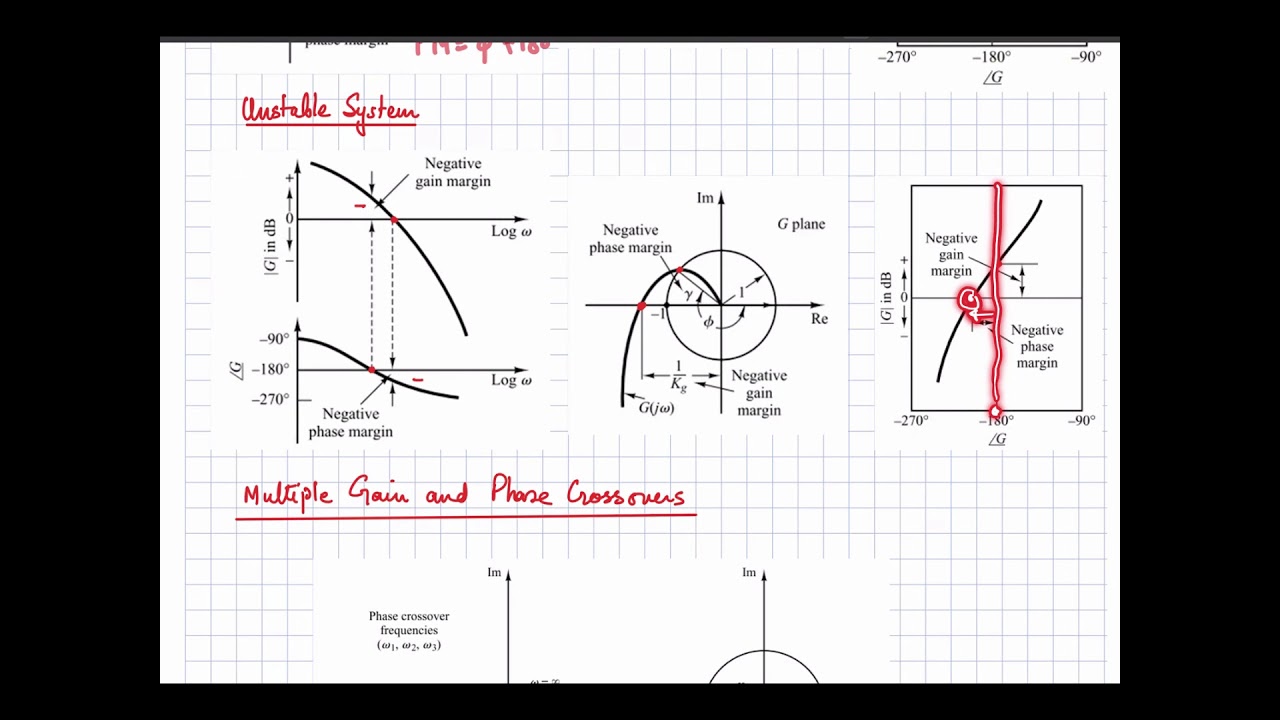 phase margin
PM = φ + 180
-270° -180° -90°
∠G
Unstable System
Negative
gain margin
+
0
−
|G| in dB
Log ω
-90°
-180°
-270°
∠G
Log ω
Negative
phase margin
Im
G plane
Negative
phase margin
γ
1
−1
φ
Re
1
Kg
Negative
gain
margin
G(jω)
Negative
gain
margin
+
0
−
|G| in dB
Negative
phase
margin
-270° -180° -90°
∠G
Multiple Gain and Phase Crossovers
Im
Im
Phase crossover
frequencies
(ω1, ω2, ω3)
ω = ∞